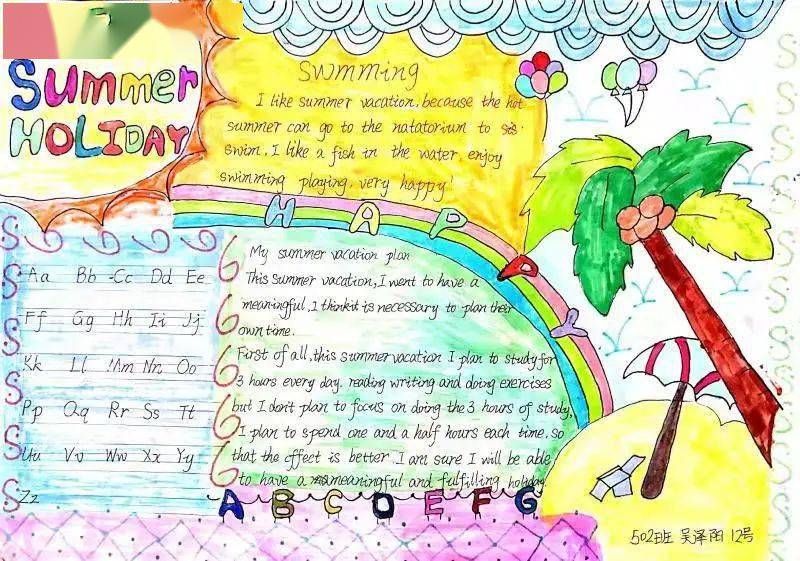 Summer
HOLIDAY
Swmming
I like summer vacation, because the hot
summer can go to the natatorium to
swim, I like a fish in the water, enjoy
swimming playing, very happy!
HAPPY
My summer vacation plan
This summer vacation, I went to have a
meaningful, I thinkit is necessary to plan their
own time.
First of all, this summer vacation I plan to study for
3 hours every day. reading writing and doing exercises
but I don't plan to focus on doing the 3 hours of study,
I plan to spend one and a half hours each time, so
that the effect is better. I am sure I will be able
to have a meaningful and fulfilling holiday.
Aa Bb Cc Dd Ee
Ff Gg Hh Ii Jj
Kk Ll Mm Nn Oo
Pp Qq Rr Ss Tt
Uu Vv Ww Xx Yy
Zz
A B C D E F G
502班 吴泽阳 12号